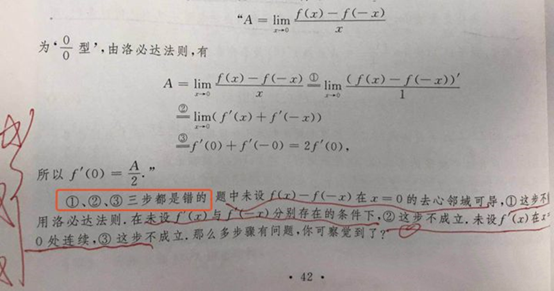 “A = lim_{x→0} (f(x) − f(−x))/x
为‘0/0 型’,由洛必达法则,有
A = lim_{x→0} (f(x) − f(−x))/x ①= lim_{x→0} (f(x) − f(−x))′/1
②= lim_{x→0} (f′(x) + f′(−x))
③= f′(0) + f′(−0) = 2f′(0),
所以 f′(0) = A/2.”
①、②、③三步都是错的 题中未设 f(x) − f(−x) 在 x = 0 的去心邻域可导,①这步不
用洛必达法则.在未设 f′(x) 与 f′(−x) 分别存在的条件下,②这步不成立.未设 f′(x) 在 x
0 处连续,③这步不成立.那么多步骤有问题,你可察觉到了?
· 42 ·